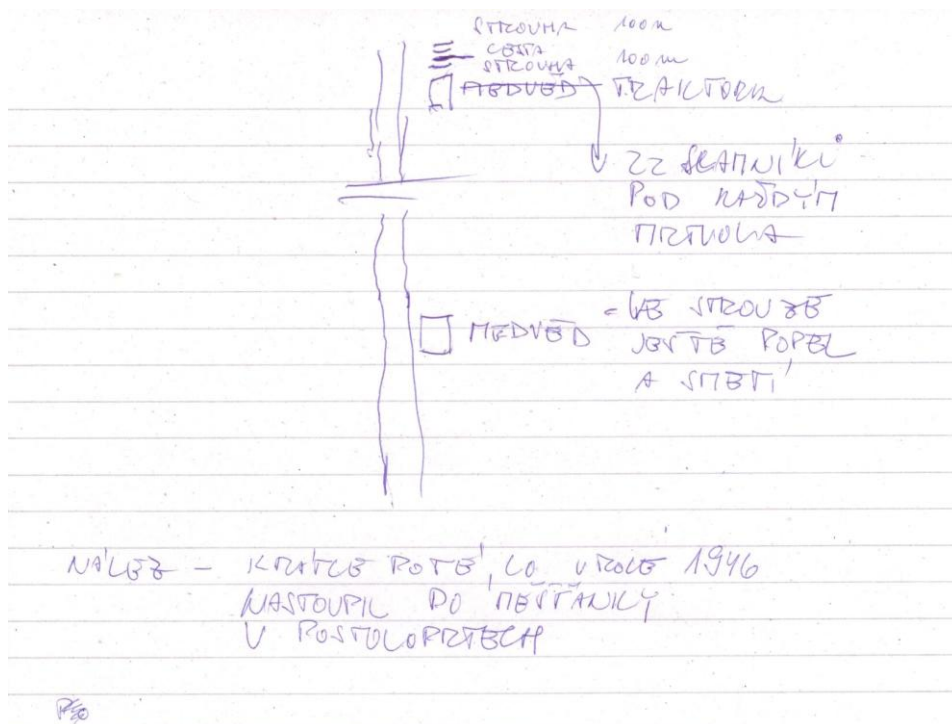 STROUHA 100 m
CESTA
STROUHA 100 m
MEDVĚD TRAKTORK
22 SKATNÍKŮ
POD KAŽDÝM
MRTVOLA
MEDVĚD = VE STROUZE
JEŠTĚ POPEL
A SMETÍ
NÁLEZ – KRÁTCE POTÉ, CO V ROCE 1946
NASTOUPIL DO MĚŠŤANKY
V POSTOLOPRTECH